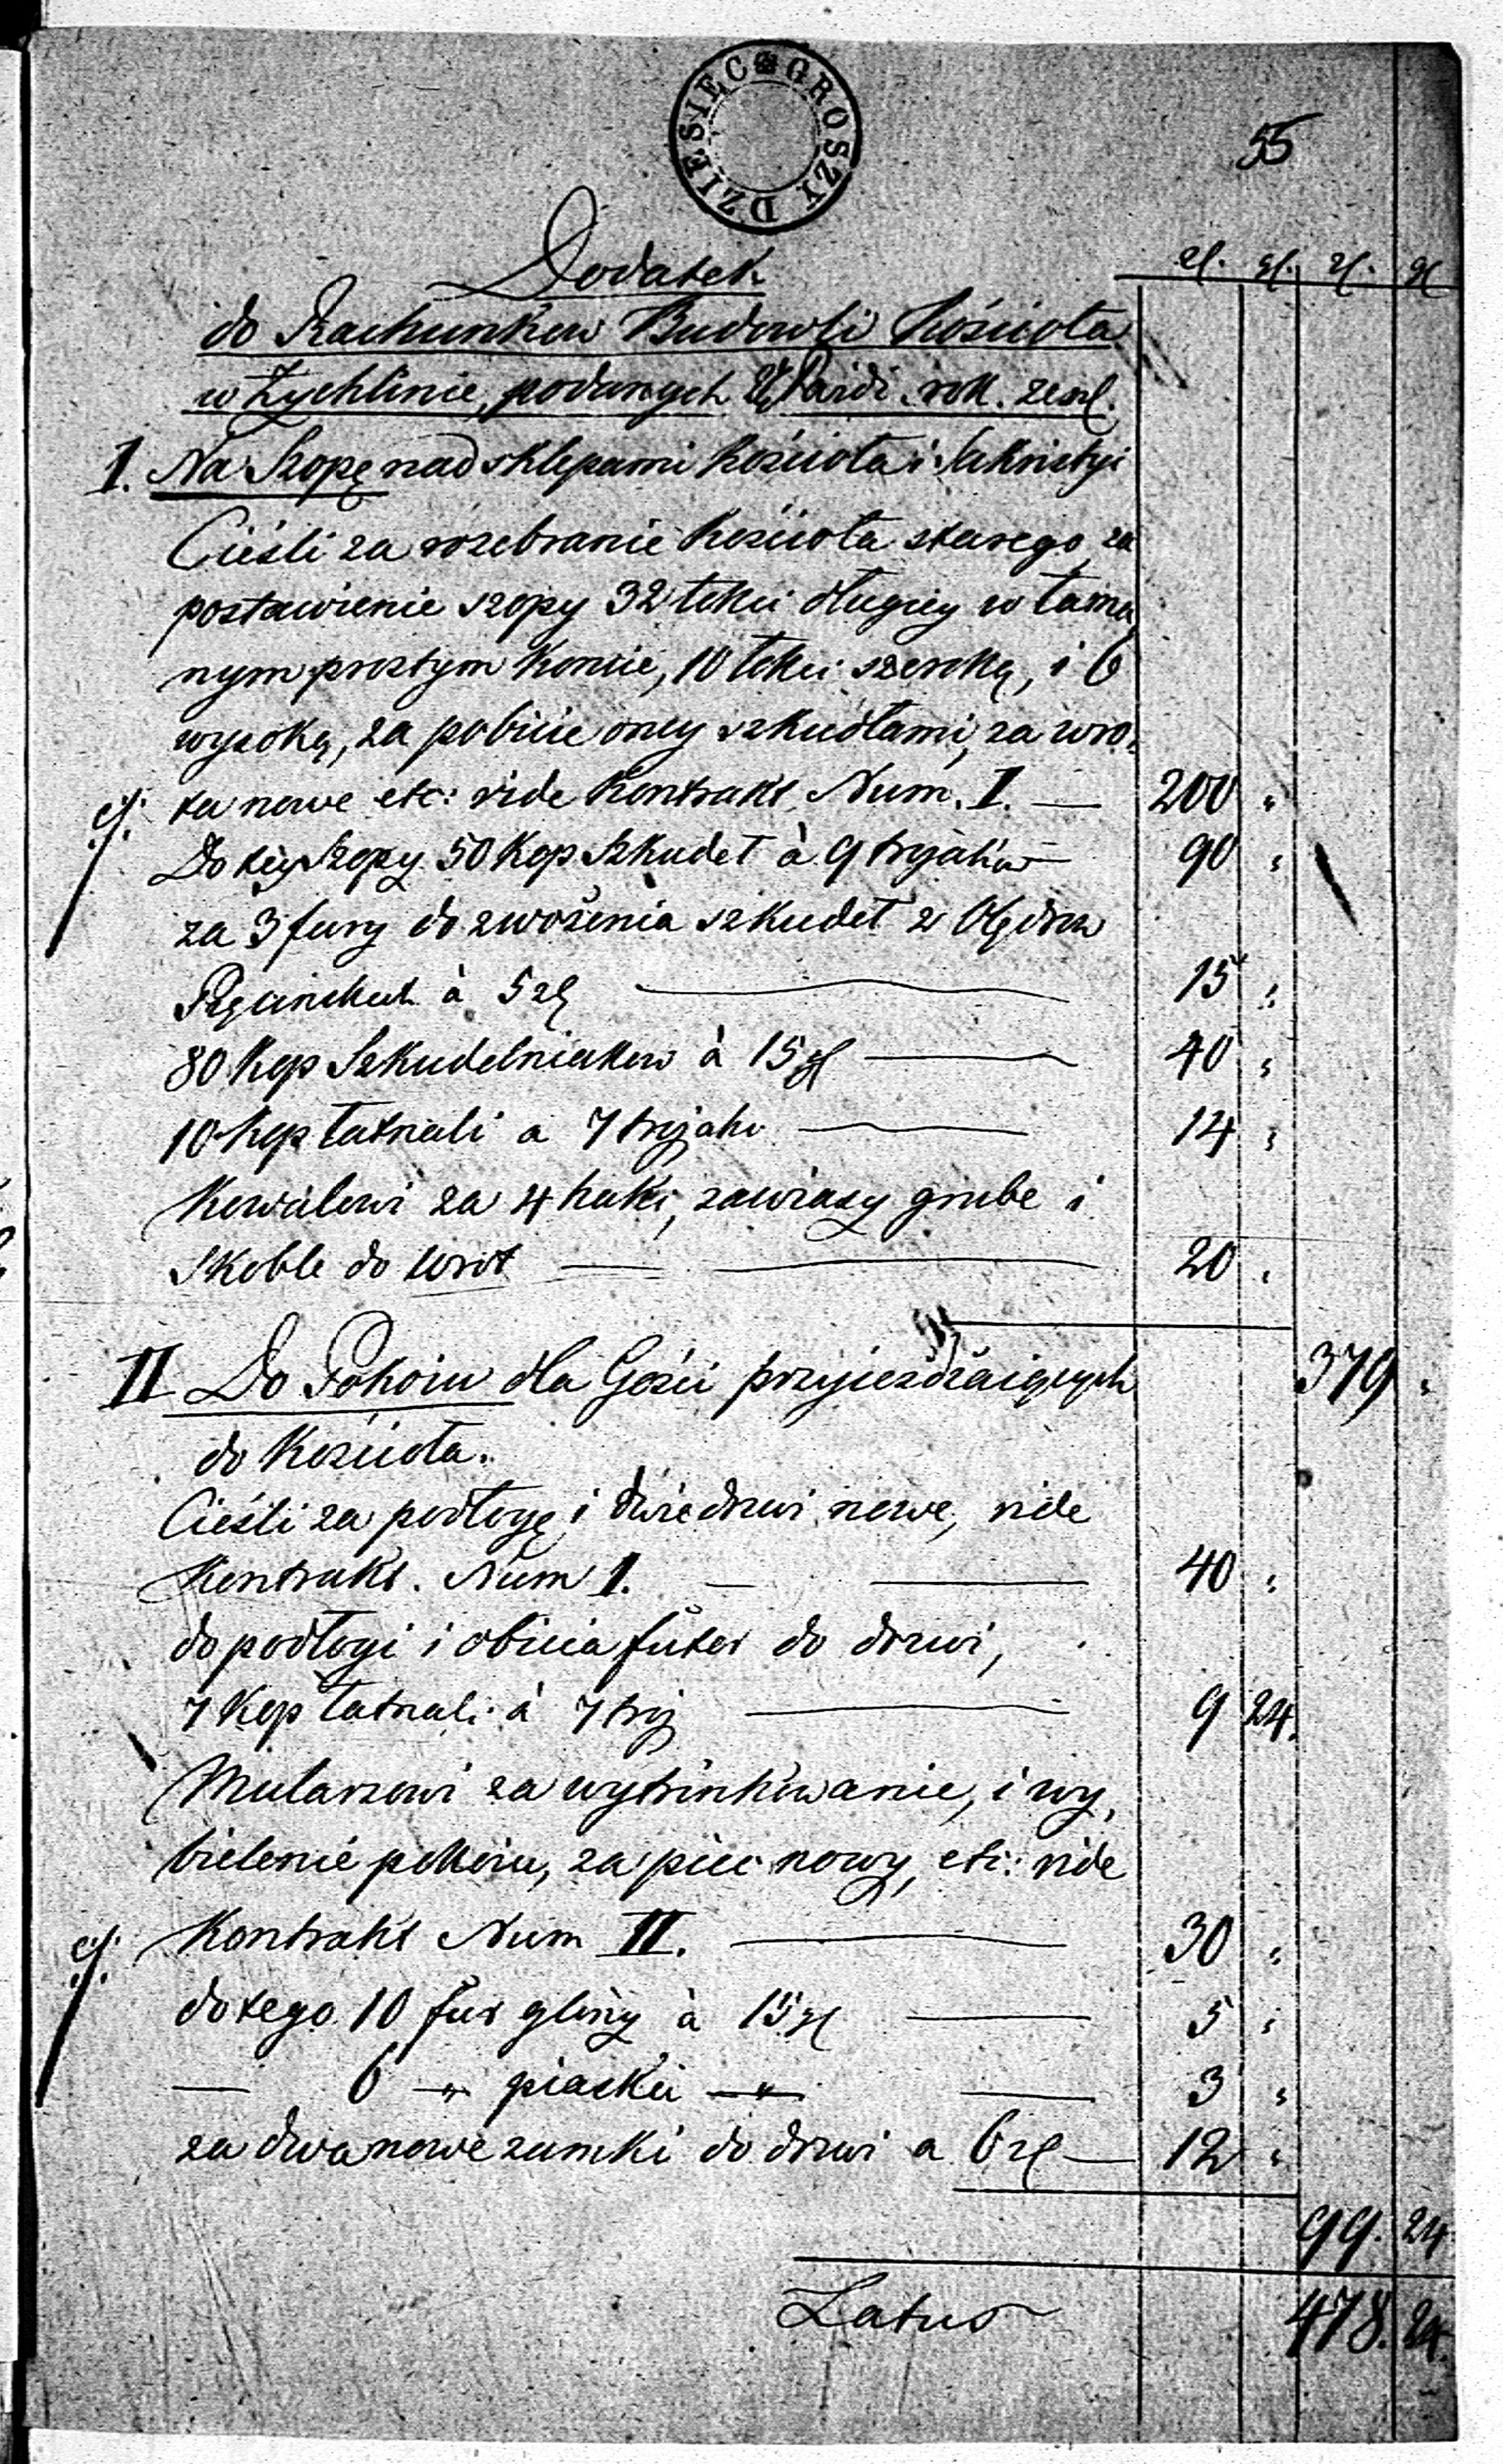 DZIESIĘC GROSZY
55
Dodatek
zł. gł. zł. gł
do Rachunkow Budowli Kościoła
w Żychlinie, podanych Paźdź. rok. zeszł.
I. Na Szopę nad sklepami Kościoła i Sakristyi
Cieśli za rozebranie Kościoła starego, za
postawienie szopy 32 łokci długiey w łama
nym prostym koncie, 10 łokci szeroką, i 6
wysoką, za pobicie oney szkudłami, za wro,
ta nowe etc: vide Kontrakt Num. I. — 200 "
Do tey Szopy 50 Kop Szkudeł à 9 trojaków — 90 "
za 3 fury do zwożenia szkudeł z
à 5 zł — 15 "
80 Kop Szkudelniakow à 15 gł — 40 "
10 Kop Łatnali a 7 trojako — 14 "
Kowalowi za 4 haki, zawiasy grube i
Skoble do wrot — 20 "
II Do Pokoiu dla Gości przyieżdżaiących 379 "
do Kościoła.
Cieśli za podłogę i dwie drzwi nowe, vide
Kontrakt. Num I. — 40 "
do podłogi i obicia futer do drzwi,
7 Kop Łatnali à 7 troj — 9 24.
Mularzowi za wytrinkowanie, i wy,
bielenie pokoiu, za piec nowy, etc: vide
Kontrakt Num II. — 30 "
do tego 10 fur gliny à 15 gł — 5 "
— 6 — " piasku — " — 3 "
za dwa nowe zamki do drzwi a 6 zł — 12 "
99. 24
Latus 478. 24.